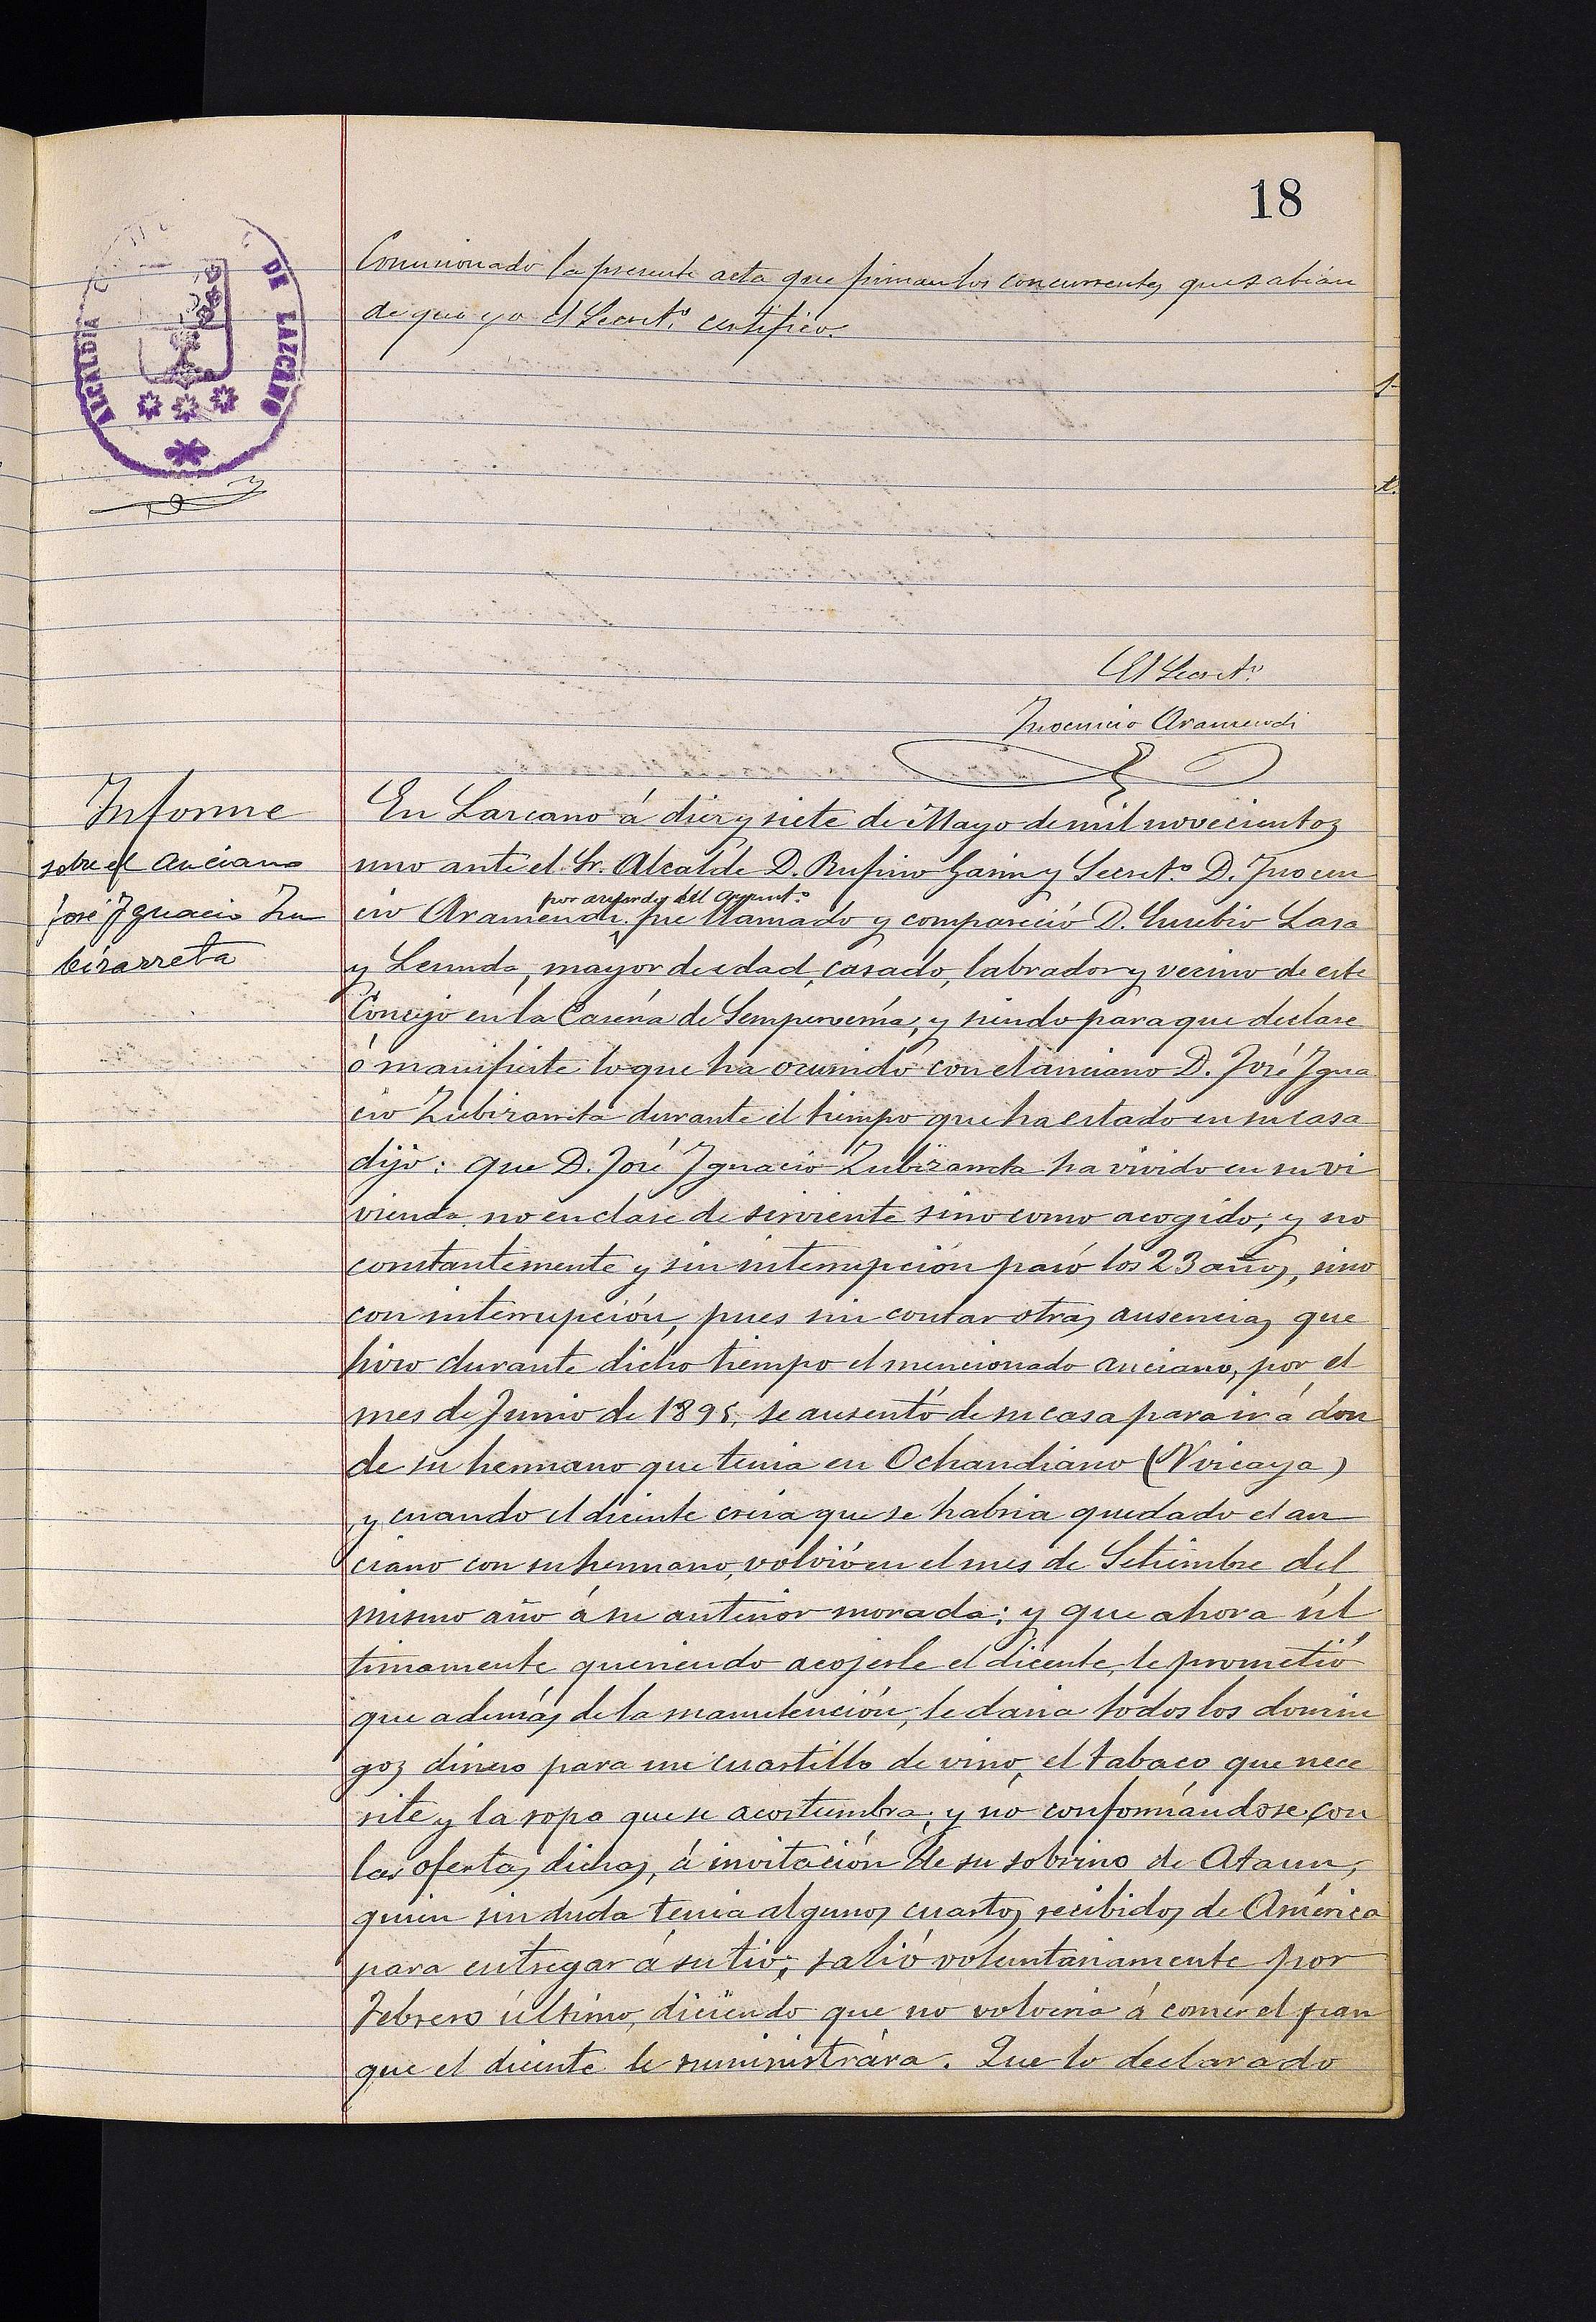 18
ALCALDÍA DE LAZCANO
Comisionado la presente acta que firman los concurrentes que sabían
de que yo el Secret.º certifico.
El Secret.º
Inocencio Aramendi
Informe
sobre el anciano
José Ignacio Zu
bizarreta
En Lazcano á diez y siete de Mayo de mil novecientos
uno ante el Sr. Alcalde D. Rufino Garin y Secret.º D. Inocen
por acuerdo del Ayunt.º
cio Aramendi fue llamado y compareció D. Eusebio Lasa
y Lesunda, mayor de edad, casado, labrador y vecino de este
Concejo en la Casería de Sempervenía, y siendo para que declare
ó manifieste lo que ha ocurrido con el anciano D. José Igna
cio Zubizarreta durante el tiempo que ha estado en su casa
dijo: que D. José Ignacio Zubizarreta ha vivido en su vi
vienda no en clase de sirviente sino como acogido; y no
constantemente y sin interrupción pasó los 23 años, sino
con interrupción, pues sin contar otras ausencias que
hizo durante dicho tiempo el mencionado anciano, por el
mes de Junio de 1895, se ausentó de su casa para ir á don
de su hermano que tenia en Ochandiano (Vizcaya)
y cuando el diciente creia que se habria quedado el an
ciano con su hermano, volvió en el mes de Setiembre del
mismo año á su anterior morada; y que ahora úl
timamente queriendo acojerle el dicente, le prometió
que además de la manutención, le daria todos los domin
gos dinero para un cuartillo de vino, el tabaco que nece
site y la ropa que se acostumbra; y no conformándose con
las ofertas dichas, á invitación de su sobrino de Ataun,
quien sin duda tenia algunos cuartos recibidos de América
para entregar á su tio; salió voluntariamente por
Febrero último, diciendo que no volveria á comer el pan
que el diciente le suministrára. Que lo declarado